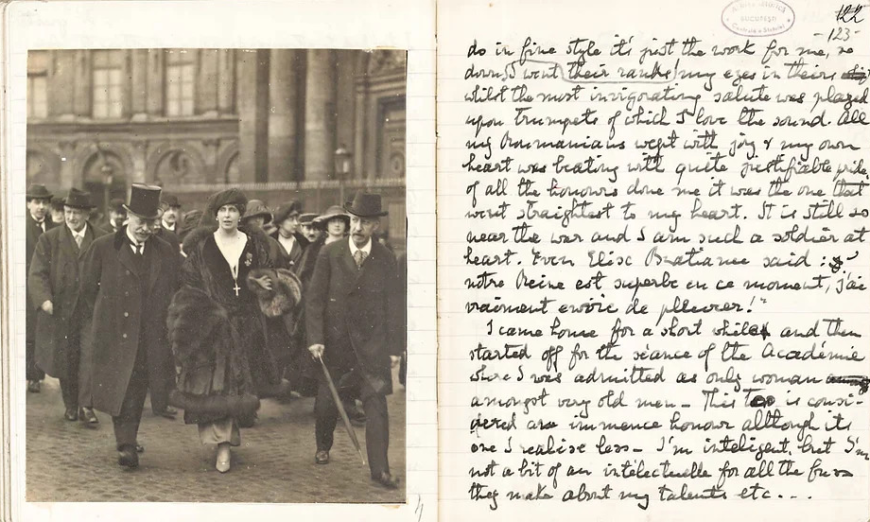 BUCUREȘTI
122
-123-
do in fine style it's just the work for me, so
down I went their ranks! my eyes in theirs
whilst the most invigorating salute was played
upon trumpets of which I love the sound. All
my Roumanians wept with joy & my own
heart was beating with quite justifiable pride,
of all the honours done me it was the one that
went straightest to my heart. It is still so
near the war and I am such a soldier at
heart. Even Elise Bratianu said: "
notre Reine est superbe en ce moment, j'ai
vraiment envie de pleurer!"
I came home for a short while and then
started off for the séance of the Académie
where I was admitted as only woman
amongst very old men - This is consi-
dered an immence honour although its
one I realise less - I'm inteligent, but I'm
not a bit of an intelectuelle for all the fuss
they make about my talents etc...